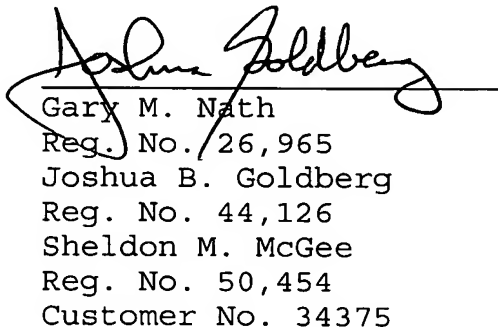 Joshua Goldberg
Gary M. Nath
Reg. No. 26,965
Joshua B. Goldberg
Reg. No. 44,126
Sheldon M. McGee
Reg. No. 50,454
Customer No. 34375